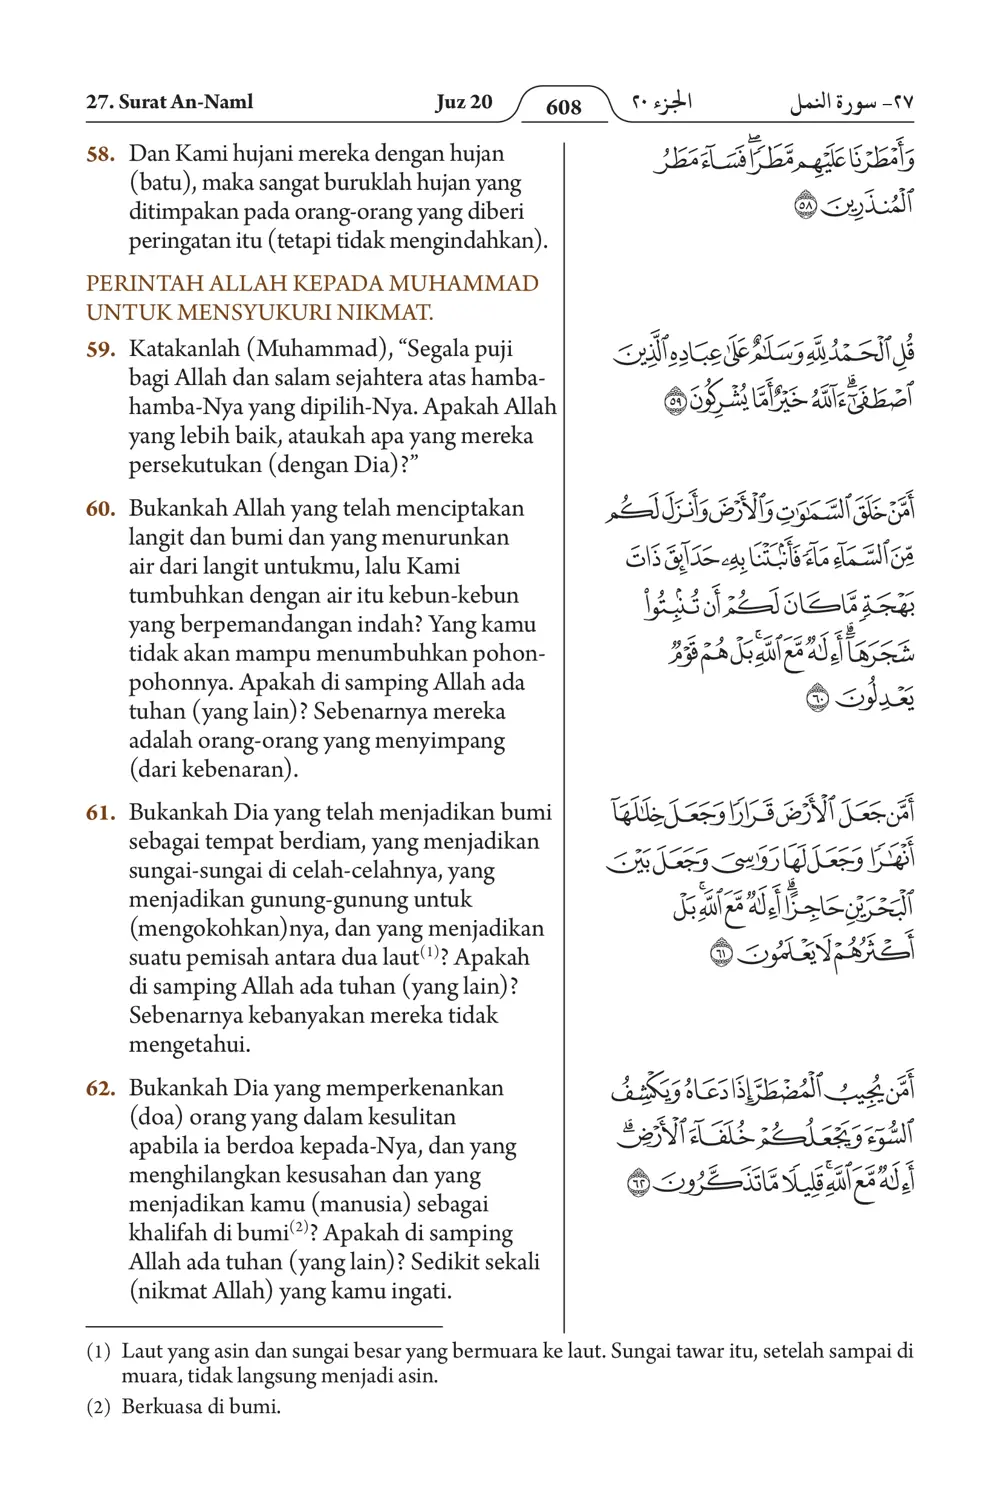 27. Surat An-Naml Juz 20 608 الجزء ٢٠ ٢٧- سورة النمل
58. Dan Kami hujani mereka dengan hujan
(batu), maka sangat buruklah hujan yang
ditimpakan pada orang-orang yang diberi
peringatan itu (tetapi tidak mengindahkan).
وَأَمْطَرْنَا عَلَيْهِم مَّطَرًاۖ فَسَآءَ مَطَرُ
ٱلْمُنذَرِينَ ٥٨
PERINTAH ALLAH KEPADA MUHAMMAD
UNTUK MENSYUKURI NIKMAT.
59. Katakanlah (Muhammad), “Segala puji
bagi Allah dan salam sejahtera atas hamba-
hamba-Nya yang dipilih-Nya. Apakah Allah
yang lebih baik, ataukah apa yang mereka
persekutukan (dengan Dia)?”
قُلِ ٱلْحَمْدُ لِلَّهِ وَسَلَٰمٌ عَلَىٰ عِبَادِهِ ٱلَّذِينَ
ٱصْطَفَىٰٓۗ ءَآللَّهُ خَيْرٌ أَمَّا يُشْرِكُونَ ٥٩
60. Bukankah Allah yang telah menciptakan
langit dan bumi dan yang menurunkan
air dari langit untukmu, lalu Kami
tumbuhkan dengan air itu kebun-kebun
yang berpemandangan indah? Yang kamu
tidak akan mampu menumbuhkan pohon-
pohonnya. Apakah di samping Allah ada
tuhan (yang lain)? Sebenarnya mereka
adalah orang-orang yang menyimpang
(dari kebenaran).
أَمَّنْ خَلَقَ ٱلسَّمَٰوَٰتِ وَٱلْأَرْضَ وَأَنزَلَ لَكُم
مِّنَ ٱلسَّمَآءِ مَآءً فَأَنۢبَتْنَا بِهِۦ حَدَآئِقَ ذَاتَ
بَهْجَةٍ مَّا كَانَ لَكُمْ أَن تُنۢبِتُوا۟
شَجَرَهَآۗ أَءِلَٰهٌ مَّعَ ٱللَّهِۚ بَلْ هُمْ قَوْمٌ
يَعْدِلُونَ ٦٠
61. Bukankah Dia yang telah menjadikan bumi
sebagai tempat berdiam, yang menjadikan
sungai-sungai di celah-celahnya, yang
menjadikan gunung-gunung untuk
(mengokohkan)nya, dan yang menjadikan
suatu pemisah antara dua laut(1)? Apakah
di samping Allah ada tuhan (yang lain)?
Sebenarnya kebanyakan mereka tidak
mengetahui.
أَمَّن جَعَلَ ٱلْأَرْضَ قَرَارًا وَجَعَلَ خِلَٰلَهَآ
أَنْهَٰرًا وَجَعَلَ لَهَا رَوَٰسِىَ وَجَعَلَ بَيْنَ
ٱلْبَحْرَيْنِ حَاجِزًاۗ أَءِلَٰهٌ مَّعَ ٱللَّهِۚ بَلْ
أَكْثَرُهُمْ لَا يَعْلَمُونَ ٦١
62. Bukankah Dia yang memperkenankan
(doa) orang yang dalam kesulitan
apabila ia berdoa kepada-Nya, dan yang
menghilangkan kesusahan dan yang
menjadikan kamu (manusia) sebagai
khalifah di bumi(2)? Apakah di samping
Allah ada tuhan (yang lain)? Sedikit sekali
(nikmat Allah) yang kamu ingati.
أَمَّن يُجِيبُ ٱلْمُضْطَرَّ إِذَا دَعَاهُ وَيَكْشِفُ
ٱلسُّوٓءَ وَيَجْعَلُكُمْ خُلَفَآءَ ٱلْأَرْضِۗ
أَءِلَٰهٌ مَّعَ ٱللَّهِۚ قَلِيلًا مَّا تَذَكَّرُونَ ٦٢
(1) Laut yang asin dan sungai besar yang bermuara ke laut. Sungai tawar itu, setelah sampai di
muara, tidak langsung menjadi asin.
(2) Berkuasa di bumi.